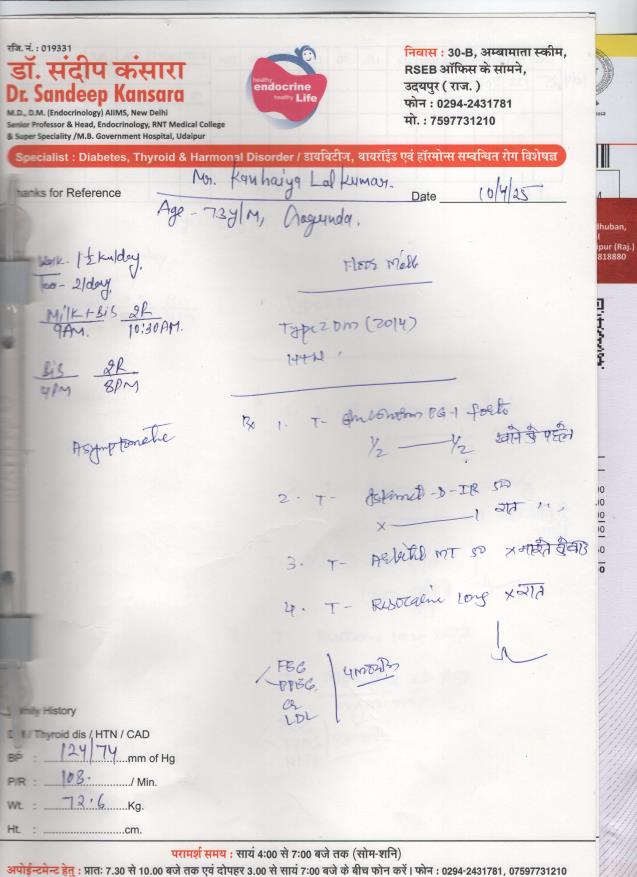 रजि. नं. : 019331
डॉ. संदीप कंसारा
Dr. Sandeep Kansara
M.D., D.M. (Endocrinology) AIIMS, New Delhi
Senior Professor & Head, Endocrinology, RNT Medical College
& Super Speciality /M.B. Government Hospital, Udaipur
healthy
endocrine
healthy Life
निवास : 30-B, अम्बामाता स्कीम,
RSEB ऑफिस के सामने,
उदयपुर ( राज. )
फोन : 0294-2431781
मो. : 7597731210
Specialist : Diabetes, Thyroid & Harmonal Disorder / डायबिटीज, थायरॉईड एवं हॉरमोन्स सम्बन्धित रोग विशेषज्ञ
hanks for Reference Mr. Kanhaiya Lal Kumar. Date 10/4/25
Age - 73y/M, Gogunda.
Walk - 1½ km/day,
Tea - 2/day,
Milk + Bis 2R
9AM. 10:30AM.
Bis 2R
4PM 8PM
Asymptomatic
Type 2 DM (2014)
HTN
Rx 1. T- PG-1 forte
1/2 1/2 खाने से पहले
2. T- -D-IR 50
x 1 रात " "
3. T- MT 50 x
4. T- long x रात
FBG
PPBG
Cr
LDL
mily History
/ Thyroid dis / HTN / CAD
BP : 124/74 mm of Hg
P/R : 108. / Min.
Wt. : 72.6 Kg.
Ht. : cm.
परामर्श समय : सायं 4:00 से 7:00 बजे तक (सोम-शनि)
अपोईन्टमेन्ट हेतु : प्रातः 7.30 से 10.00 बजे तक एवं दोपहर 3.00 से सायं 7:00 बजे के बीच फोन करें। फोन : 0294-2431781, 07597731210
dhuban,
ipur (Raj.)
818880